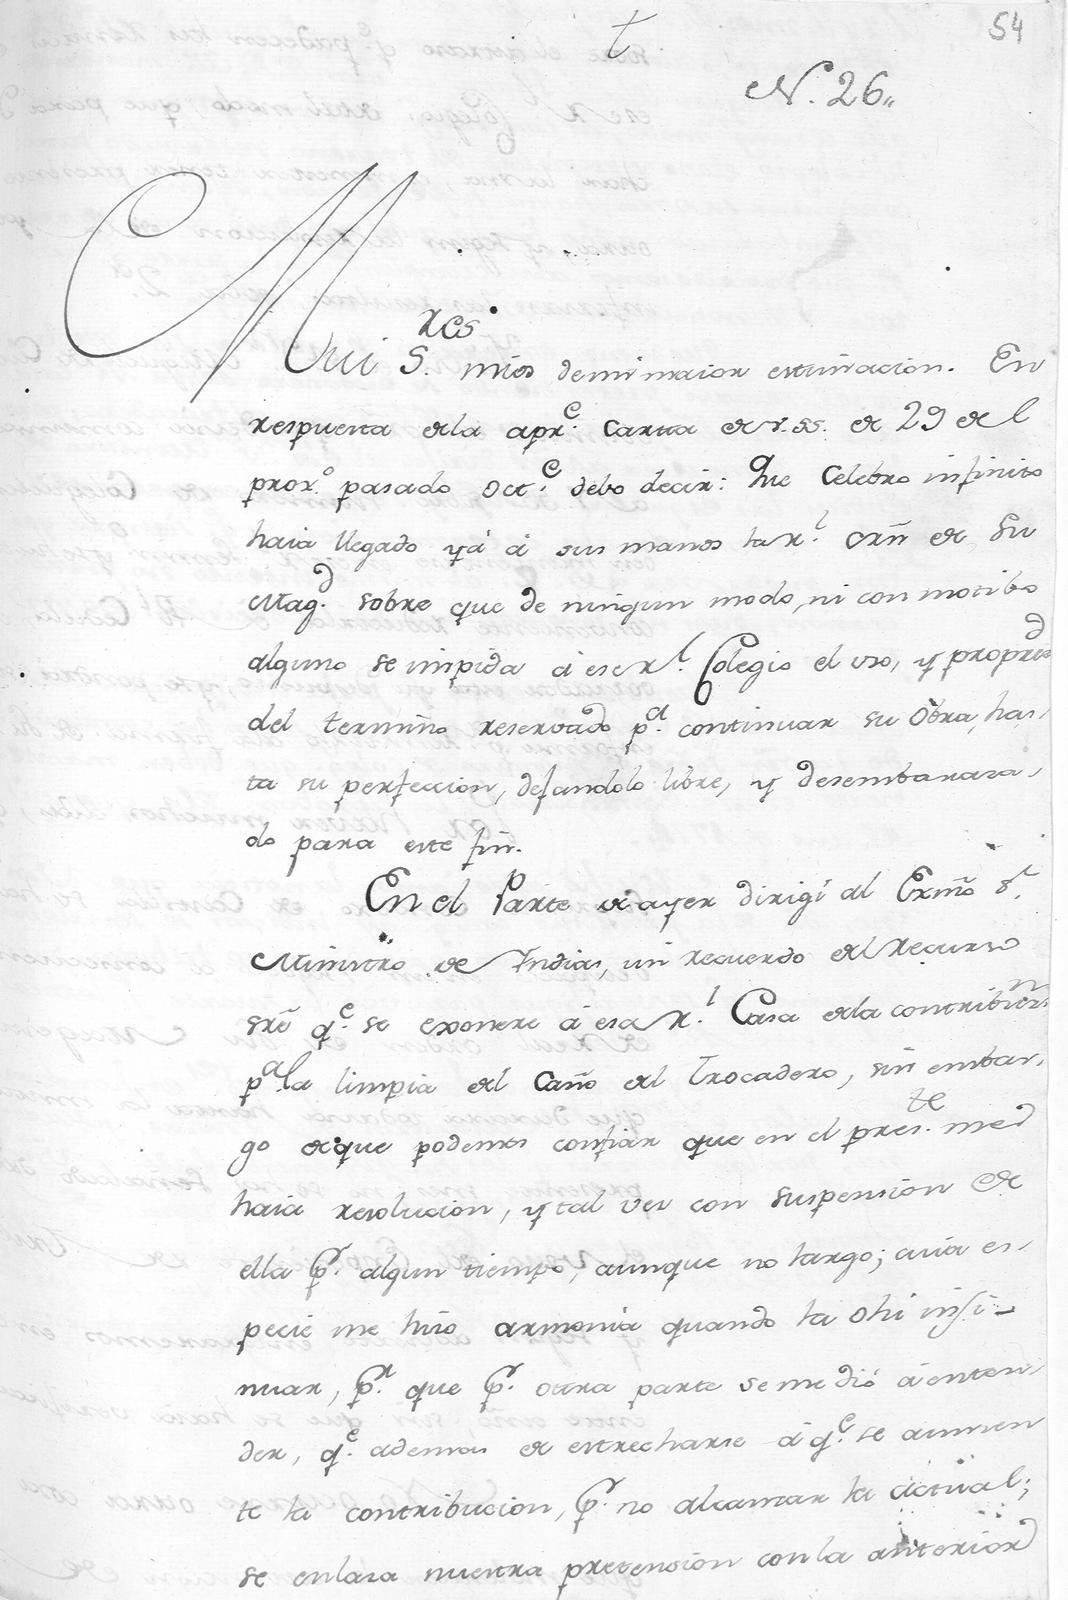 54
t
N. 26,,
Mui S.res mios de mi maior estimacion. En
respuesta de la apre.e Carta de V.SS. de 29 del
pror.o pasado Oct.e debo decir: Que Celebro infinito
haia llegado yá á sus manos la R.l Orñ de Su
Mag.d sobre que de ningun modo, ni con motibo
alguno se impida á ese R.l Colegio el uso, y propried.d
del termino reservado p.a continuar su Obra, has-
ta su perfeccion, dejandolo libre, y desembaraza-
do para este fin.
En el Parte de ayer dirigí al Exmõ S.r
Ministro de Indias, un recuerdo del Recurso
sre q.e se exonere á esa R.l Casa de la contribuz.n
p.a la limpia del Caño del Trocadero, sin embar-
go de que podemos confiar que en el pres.te mes
haia resolucion, y tal vez con suspension de
ella p.r algun tiempo, aunque no largo; cuia es-
pecie me hizo armonia quando la ohi insi-
nuar, p.r que p.r otra parte se me dió á enten-
der, q.e ademas de estrecharse á q.e se aumen
te la contribucion, p.r no alcanzar la actual;
se enlaza nuestra pretension con la anterior